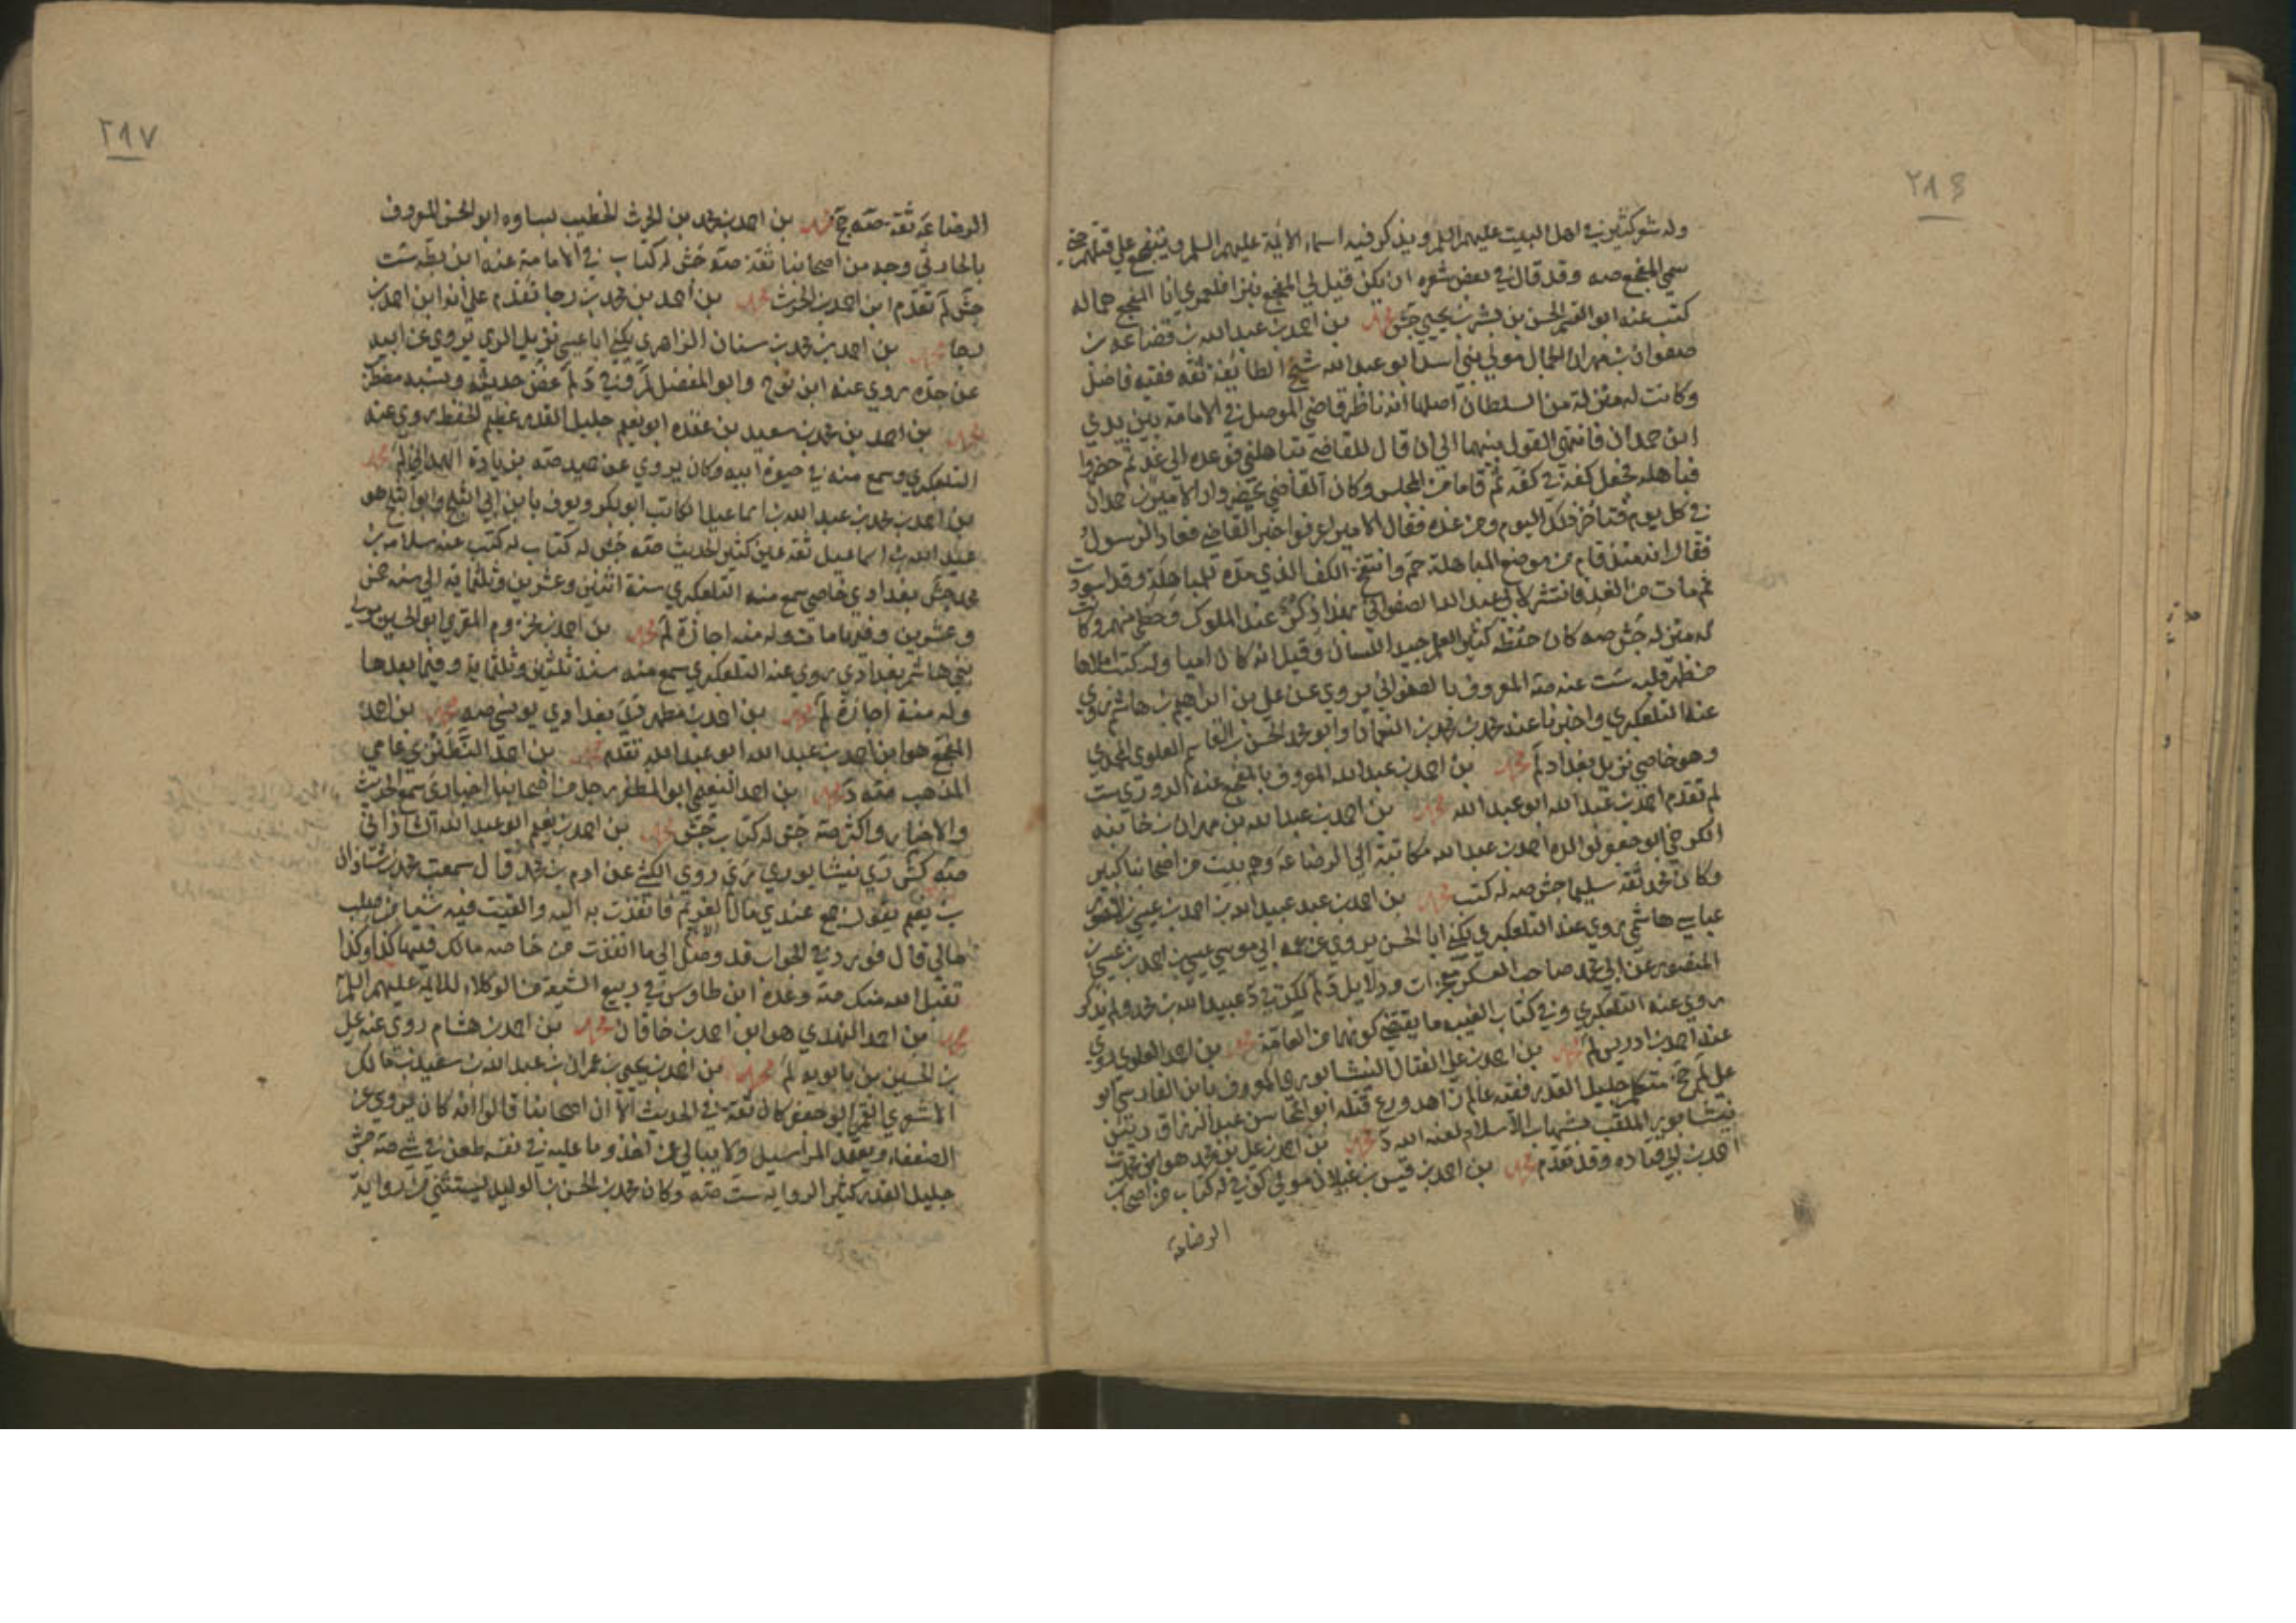 ٢٩٦
وله شعر كثير في اهل البيت عليهم السلم ويذكر فيه اسماء الائمة عليهم السلم ويتفجع على قتلهم حتى
سمي المفجع صه وقد قال في بعض شعره ان يكن قيل لي المفجع نبزا فلعمري انا المفجع هما له
كتب عنه ابو القسم الحسن بن بشر بن يحيى جش محمد بن احمد بن عبد الله بن قضاعة بن
صفوان بن مهران الجمال مولى بني اسد ابو عبد الله شيخ الطايفة ثقة فقيه فاضل
وكانت له منزلة من السلطان اصلها انه ناظر قاضي الموصل في الامامة بين يدي
ابن حمدان فانتهى القول بينهما الى ان قال للقاضي تباهلني فوعده الى غد ثم حضروا
فباهله فجعل كفه في كفه ثم قاما من المجلس وكان القاضي يحضر دار الامير بن حمدان
في كل يوم فتاخر ذلك اليوم ومن غده فقال الامير اعرفوا خبر القاضي فعاد الرسول
فقال انه منذ قام من موضع المباهلة حم وانتفخ الكف الذي مده للمباهلة وقد اسودت
ثم مات من الغد فانتشر لابي عبد الله الصفواني بهذا ذكر عند الملوك وحظي منهم وكانت
له منزلة جش صه كان حفظة كثير العلم جيد اللسان وقيل انه كان اميا وله كتب املاها
من ظهر قلبه ست عنه صه المعروف بالصفواني يروي عن علي بن ابراهيم بن هاشم روى
عنه التلعكبري واخبرنا عنه محمد بن محمد بن النعمان وابو محمد الحسن بن القاسم العلوي المحمدي
وهو خاصي نزيل بغداد لم محمد بن احمد بن عبد الله المعروف بالمفجع عنه الدوري ست
لم تقدم احمد بن عبد الله ابو عبد الله محمد بن احمد بن عبد الله بن مهران بن خانبه
الكرخي ابو جعفر لوالده احمد بن عبد الله مكاتبة الى الرضا عه وهم بيت من اصحابنا كبير
وكان محمد ثقة سليما جش صه له كتب محمد بن احمد بن عبد عبيد الله بن احمد بن عيسى بن المنصور
عباسي هاشمي روى عنه التلعكبري يكنى ابا الحسن يروي عن عمه ابي موسى عيسى بن احمد بن عيسى بن
المنصور عن ابي محمد صاحب العسكر معجزات ودلايل لم لكن في د عبيد الله بن محمد ولم يذكر
روى عنه التلعكبري وفي كتاب الغيبة ما يقتضي كونهما من العامة محمد بن احمد العلوي روى
عنه احمد بن ادريس لم محمد بن احمد بن علي الفتال النيشابوري المعروف بابن الفارسي ابو
علي لم جخ متكلم جليل القدر فقيه عالم زاهد ورع قتله ابو المحاسن عبد الرزاق رييس
نيشابور الملقب بشهاب الاسلام لعنه الله د محمد بن احمد بن علي بن محمد هو ابن محمد بن
احمد بن ابي قتاده وقد تقدم محمد بن احمد بن قيس بن غيلان مولى كوفي له كتاب من اصحاب
الرضا عه
٢٩٧
الرضا عه ثقة صه جخ محمد بن احمد بن محمد بن الحرث الخطيب بساوه ابو الحسن المعروف
بالحارثي وجه من اصحابنا ثقة صه جش له كتاب في الامامة عنه ابن بطه ست
جش لم تقدم ابن احمد بن الحرث محمد بن احمد بن محمد بن رجا تقدم على انه ابن احمد بن
رجا محمد بن احمد بن محمد بن سنان الزاهري يكنى ابا عيسى نزيل الري يروي عن ابيه
عن جده روى عنه ابن نوح وابو المفضل لم وفي د لم غض حديثه ونسبه مضطرب
محمد بن احمد بن محمد بن سعيد بن عقده ابو نعيم جليل القدر عظيم الحفظ روى عنه
التلعكبري وسمع منه في حيوة ابيه وكان يروي عن حميد صه بن زيادة المداني لم محمد
بن احمد بن محمد بن عبد الله بن اسماعيل الكاتب ابو بكر ويعرف بابن ابي الثلج وابو الثلج هو
عبد الله بن اسماعيل ثقة عين كثير الحديث صه جش له كتاب له كتب عنه سلامه بن
محمد جش بغدادي خاصي سمع منه التلعكبري سنة اثنتين وعشرين وثلثماية الى سنة خمس
وعشرين وفيها مات وله منه اجازة لم محمد بن احمد بن مخزوم المقري ابو الحسين مولى
بني هاشم بغدادي روى عنه التلعكبري سمع منه سنة ثلثين وثلثماية وفيما بعدها
وله منه اجازة لم محمد بن احمد بن مطهر بغدادي يونسي صه محمد بن احمد
المفجع هو ابن احمد بن عبد الله ابو عبد الله تقدم محمد بن احمد النطنزي عامي
المذهب صه د محمد بن احمد النعيمي ابو المظفر رجل من اصحابنا اخباري سمع الحديث
والاخبار واكثر صه جش له كتاب جش محمد بن احمد بن نعيم ابو عبد الله الشاذاني
صه كش دي نيشابوري روى الكشي عن ادم بن محمد قال سمعت محمد بن شاذان
بن نعيم يقول جمع عندي مال للغريم فانفذت به اليه والقيت فيه شيئا من صلب
مالي قال فورد في الجواب قد وصل الي ما انفذت من خاصة مالك فيها كذا وكذا
تقبل الله منك صه وعده ابن طاوس في ربيع الشيعة من الوكلاء للائمة عليهم السلم
محمد بن احمد النهدي هو ابن احمد بن خاقان محمد بن احمد بن هشام روى عنه علي
بن الحسين بن بابويه لم محمد بن احمد بن يحيى بن عمران بن عبد الله بن سعيد بن مالك
الاشعري القمي ابو جعفر كان ثقة في الحديث الا ان اصحابنا قالوا انه كان يروي عن
الضعفاء ويعتمد المراسيل ولا يبالي عن اخذ وما عليه في نفسه طعن في شيء صه جش
جليل القدر كثير الرواية ست صه وكان محمد بن الحسن بن الوليد يستثني من رواية